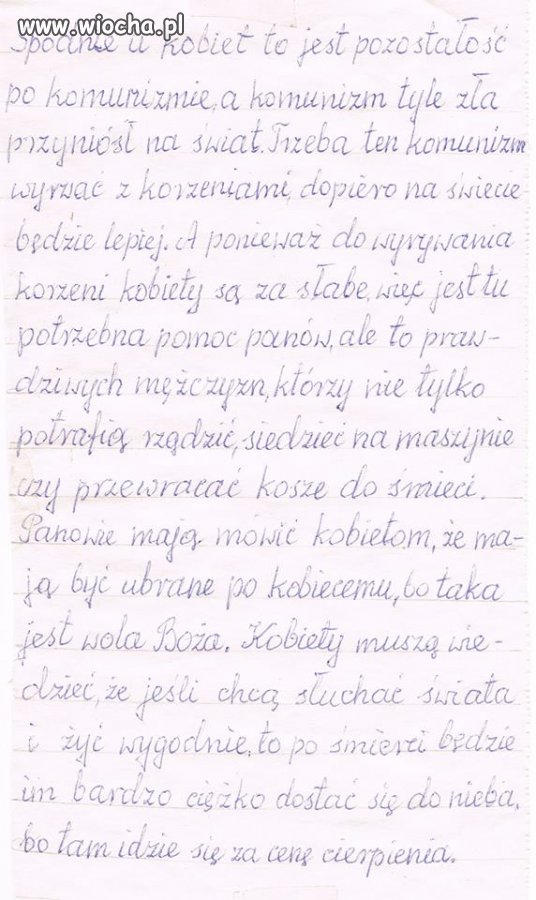 www.wiocha.pl
Spodnie u kobiet to jest pozostałość
po komunizmie, a komunizm tyle zła
przyniósł na świat. Trzeba ten komunizm
wyrwać z korzeniami, dopiero na świecie
będzie lepiej. A ponieważ do wyrywania
korzeni kobiety są za słabe, więc jest tu
potrzebna pomoc panów, ale to praw-
dziwych mężczyzn, którzy nie tylko
potrafią rządzić, siedzieć na maszynie
czy przewracać kosze do śmieci.
Panowie mają mówić kobietom, że ma-
ją być ubrane po kobiecemu, bo taka
jest wola Boża. Kobiety muszą wie-
dzieć, że jeśli chcą słuchać świata
i żyć wygodnie, to po śmierci będzie
im bardzo ciężko dostać się do nieba,
bo tam idzie się za cenę cierpienia.